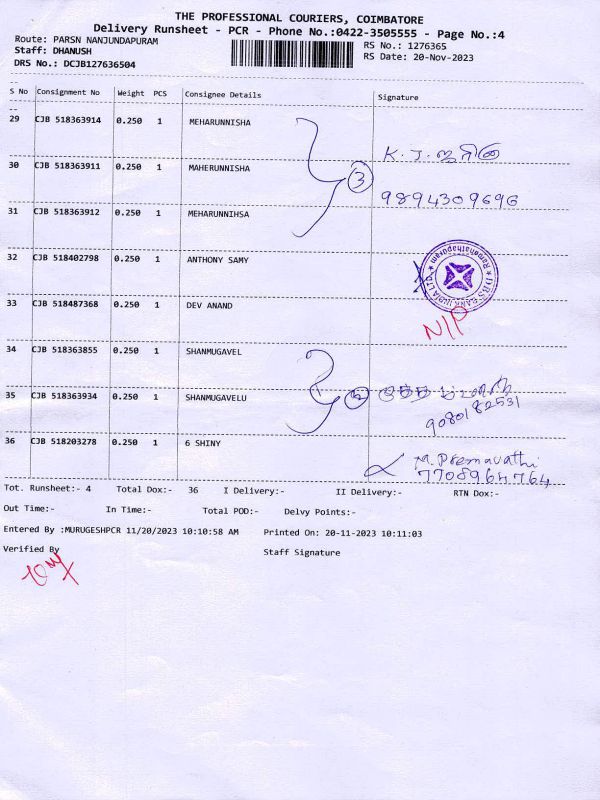 THE PROFESSIONAL COURIERS, COIMBATORE
Delivery Runsheet - PCR - Phone No.:0422-3505555 - Page No.:4
Route: PARSN NANJUNDAPURAM RS No.: 1276365
Staff: DHANUSH RS Date: 20-Nov-2023
DRS No.: DCJB127636504
S No Consignment No Weight PCS Consignee Details Signature
29 CJB 518363914 0.250 1 MEHARUNNISHA
K. J.
30 CJB 518363911 0.250 1 MAHERUNNISHA 3
9894309696
31 CJB 518363912 0.250 1 MEHARUNNIHSA
32 CJB 518402798 0.250 1 ANTHONY SAMY
DBS BANK INDIA LTD. Ramanathapuram
33 CJB 518487368 0.250 1 DEV ANAND
N/P
34 CJB 518363855 0.250 1 SHANMUGAVEL
35 CJB 518363934 0.250 1 SHANMUGAVELU 2
9080182531
36 CJB 518203278 0.250 1 6 SHINY
M. Premavathi
7708964764
Tot. Runsheet:- 4 Total Dox:- 36 I Delivery:- II Delivery:- RTN Dox:-
Out Time:- In Time:- Total POD:- Delvy Points:-
Entered By :MURUGESHPCR 11/20/2023 10:10:58 AM Printed On: 20-11-2023 10:11:03
Verified By Staff Signature